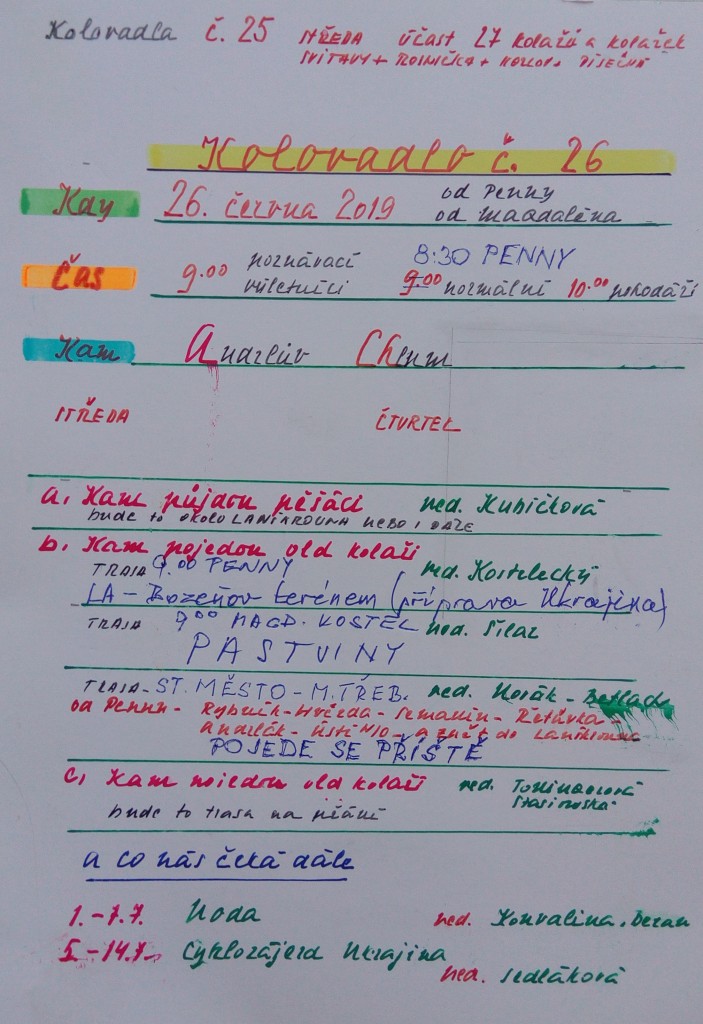 Kolovadla č. 25 STŘEDA účast 27 kolařů a kolařek
SVITAVY + ROSNIČKA +
Kolovadlo č. 26
Kdy 26. června 2019 od Penny
od Magdaléna
Čas 9.00 poznávací 8:30 PENNY
výletníci 9.00 normální 10.00 pohodáři
Kam Andrlův Chlum
STŘEDA ČTVRTEK
a, Kam půjdou pěšáci ved. Kubíčková
bude to okolo LANŠKROUNA NEBO I DÁLE
b. Kam pojedou old kolaři
TRASA 9.00 PENNY ved. Kostelecký
LA - Bozeňov terénem (příprava Ukrajina)
TRASA 9.00 MAGD. KOSTEL ved. Šilar
PASTVINY
TRASA - ST. MĚSTO - M. TŘEB. ved. Horák -
od Penny - Rybník - Hvězda - Semanín - Řetůvka -
Andrlák - Ústí N/O - a zpět do Lanškrouna
POJEDE SE PŘÍŠTĚ
c, Kam pojedou old kolaři ved.
bude to trasa na přání
a co nás čeká dále
1.-7.7. Voda ved. Konvalina, Beran
5.-14.7. Cyklozájezd Ukrajina
ved. Sedláková